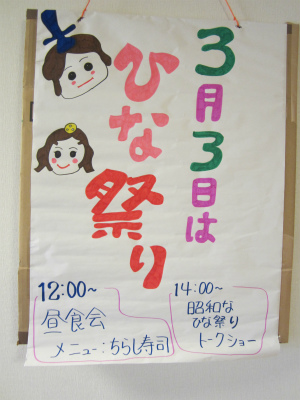 3月3日は
ひな祭り
12:00~
昼食会
メニュー:ちらし寿司
14:00~
昭和な
ひな祭り
トークショー